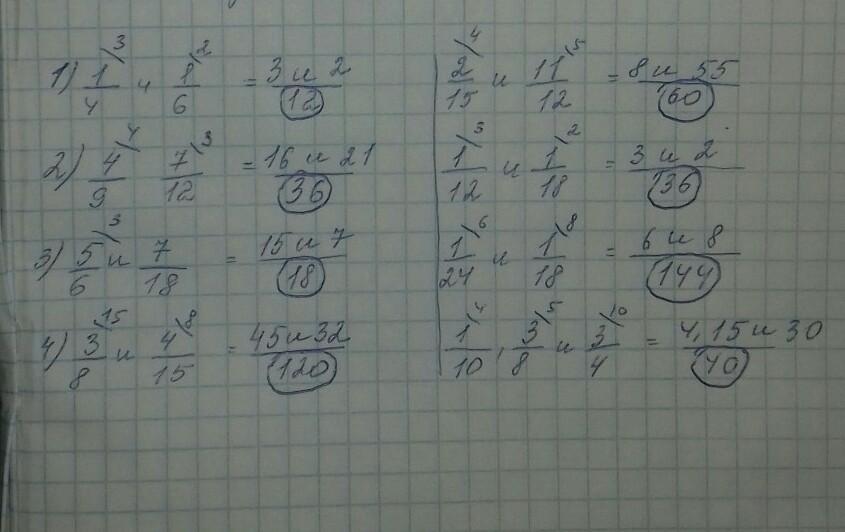 1) 1/4 \3 и 1/6 \2 = 3 и 2 / 12
2) 4/9 \4 7/12 \3 = 16 и 21 / 36
3) 5/6 \3 и 7/18 = 15 и 7 / 18
4) 3/8 \15 и 4/15 \8 = 45 и 32 / 120
2/15 \4 и 11/12 \5 = 8 и 55 / 60
1/12 \3 и 1/18 \2 = 3 и 2 / 36
1/24 \6 и 1/18 \8 = 6 и 8 / 144
1/10 \4, 3/8 \5 и 3/4 \10 = 4, 15 и 30 / 40